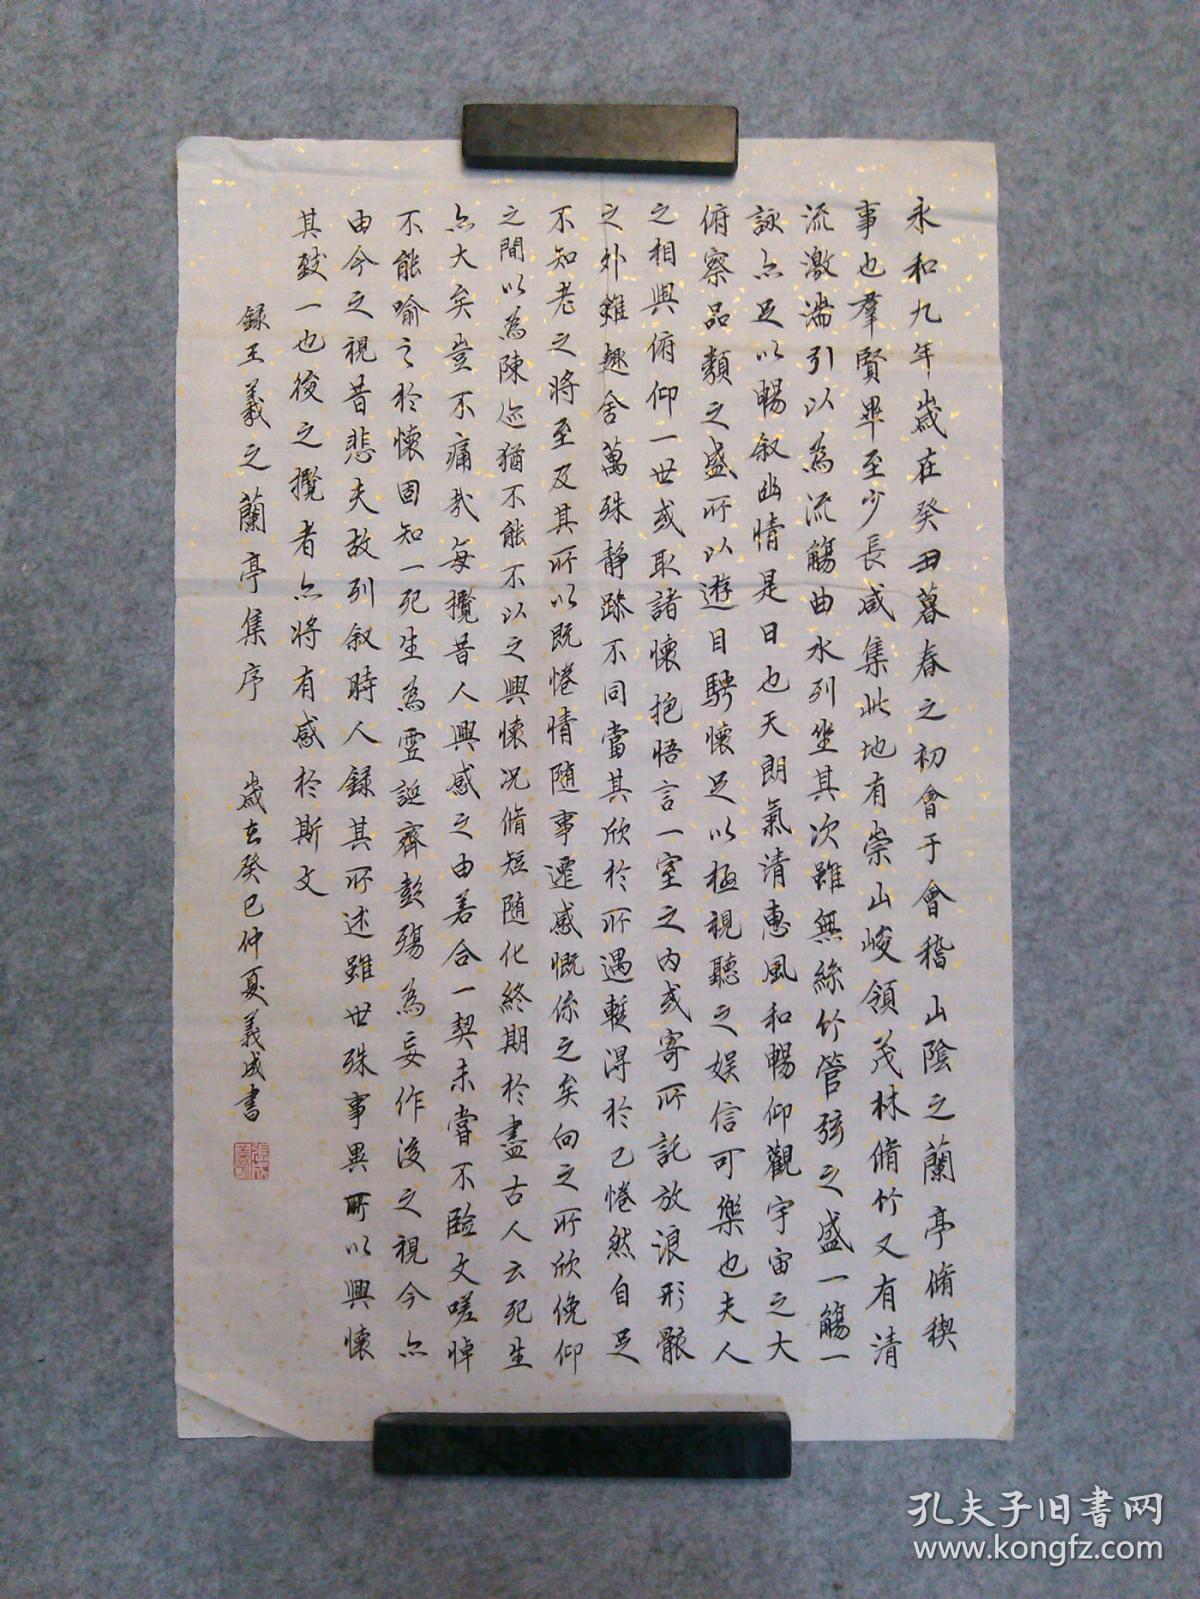 永和九年歲在癸丑暮春之初會于會稽山陰之蘭亭脩稧
事也羣賢畢至少長咸集此地有崇山峻領茂林脩竹又有清
流激湍引以為流觴曲水列坐其次雖無絲竹管弦之盛一觴一
詠亦足以暢叙幽情是日也天朗氣清惠風和暢仰觀宇宙之大
俯察品類之盛所以遊目騁懷足以極視聽之娱信可樂也夫人
之相與俯仰一世或取諸懷抱悟言一室之内或寄所託放浪形骸
之外雖趣舍萬殊靜躁不同當其欣於所遇蹔得於己惓然自足
不知老之將至及其所以既惓情随事遷感慨係之矣向之所欣俛仰
之間以為陳迹猶不能不以之興懷况脩短随化終期於盡古人云死生
亦大矣豈不痛哉每攬昔人興感之由若合一契未甞不臨文嗟悼
不能喻之於懷固知一死生為虛誕齊彭殤為妄作後之視今亦
由今之視昔悲夫故列叙時人録其所述雖世殊事異所以興懷
其致一也後之攬者亦將有感於斯文
録王羲之蘭亭集序 歲在癸巳仲夏義成書
孔夫子旧書网
www.kongfz.com